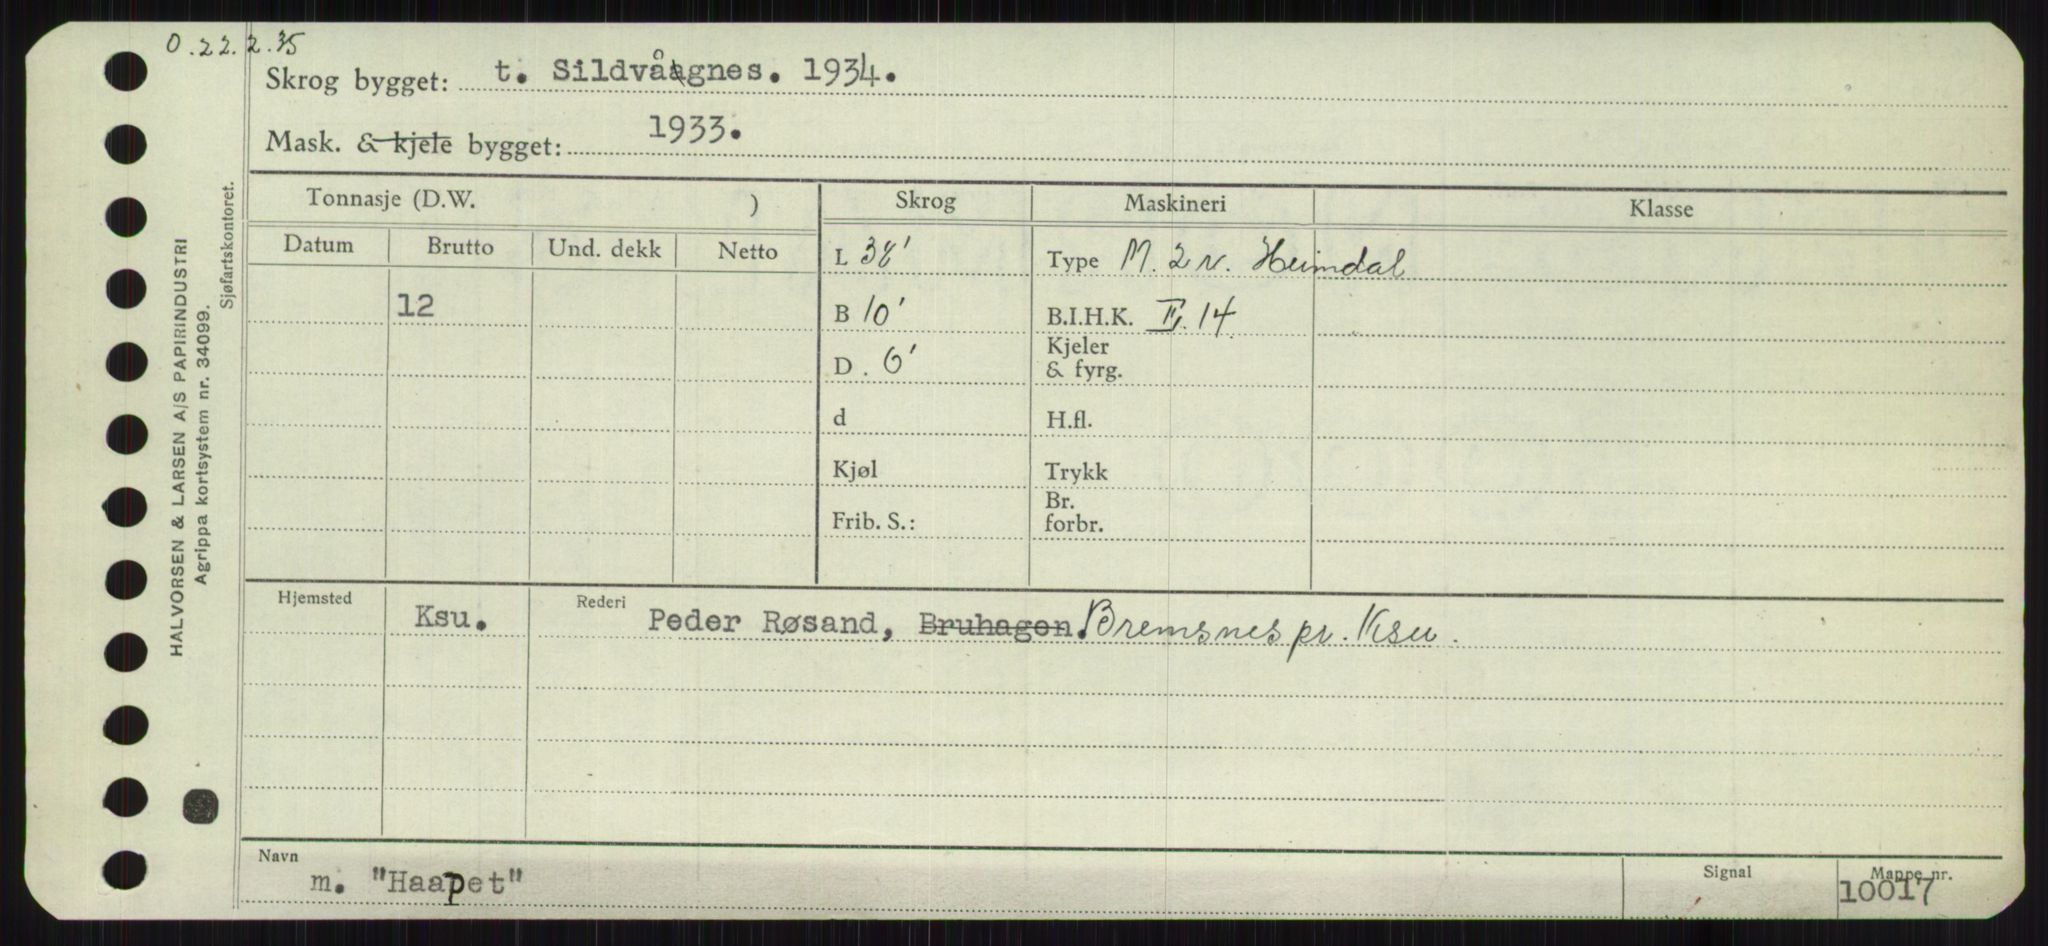 O.22.2.35
Skrog bygget: t. Sildvågnes. 1934.
Mask. & kjele bygget: 1933.
Tonnasje (D.W. ) Skrog Maskineri Klasse
Datum Brutto Und. dekk Netto L 38' Type M. 2 v. Heimdal
12 B 10' B.I.H.K. II, 14
D. 6' Kjeler
& fyrg.
d H.fl.
Kjøl Trykk
Frib. S.: Br.
forbr.
Hjemsted Ksu. Rederi Peder Røsand, Bruhagen. Bremsnes pr. Ksu.
Navn Signal Mappe nr.
m. "Haapet" 10017
HALVORSEN & LARSEN A/S PAPIRINDUSTRI
Agrippa kortsystem nr. 34099.
Sjøfartskontoret.